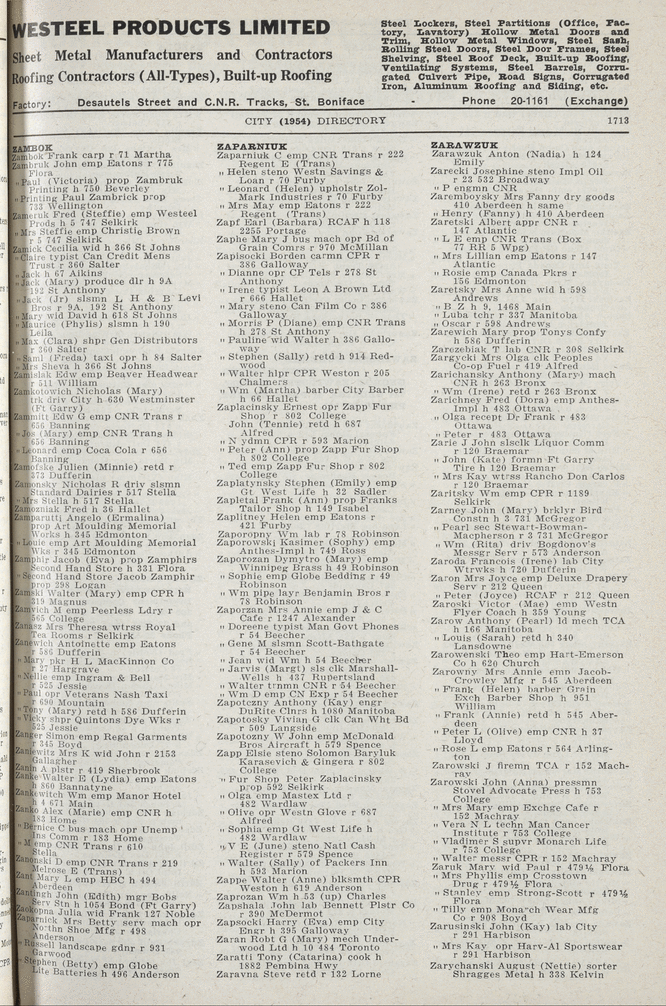 WESTEEL PRODUCTS LIMITED
Sheet Metal Manufacturers and Contractors
Roofing Contractors (All-Types), Built-up Roofing
Steel Lockers, Steel Partitions (Office, Fac-
tory, Lavatory) Hollow Metal Doors and
Trim, Hollow Metal Windows, Steel Sash,
Rolling Steel Doors, Steel Door Frames, Steel
Shelving, Steel Roof Deck, Built-up Roofing,
Ventilating Systems, Steel Barrels, Corru-
gated Culvert Pipe, Road Signs, Corrugated
Iron, Aluminum Roofing and Siding, etc.
Factory: Desautels Street and C.N.R. Tracks, St. Boniface - Phone 20-1161 (Exchange)
CITY (1954) DIRECTORY 1713
ZAMBOK
Zambok Frank carp r 71 Martha
Zambruk John emp Eatons r 775
Flora
" Paul (Victoria) prop Zambruk
Printing h 750 Beverley
" Printing Paul Zambrick prop
733 Wellington
Zameruk Fred (Steffie) emp Westeel
Prods h 5 747 Selkirk
" Mrs Steffie emp Christie Brown
r 5 747 Selkirk
Zamick Cecilia wid h 366 St Johns
" Claire typist Can Credit Mens
Trust r 360 Salter
" Jack h 67 Aikins
" Jack (Mary) produce dlr h 9A
192 St Anthony
" Jack (Jr) slsmn L H & B Levi
Bros r 9A, 192 St Anthony
" Mary wid David h 618 St Johns
" Maurice (Phylis) slsmn h 190
Leila
" Max (Clara) shpr Gen Distributors
r 360 Salter
" Saml (Freda) taxi opr h 84 Salter
" Mrs Sheva h 366 St Johns
Zamislak Edw emp Beaver Headwear
r 511 William
Zamkotowich Nicholas (Mary)
trk driv City h 630 Westminster
(Ft Garry)
Zammit Edw G emp CNR Trans r
656 Banning
" Jos (Mary) emp CNR Trans h
656 Banning
" Leonard emp Coca Cola r 656
Banning
Zamofske Julien (Minnie) retd r
573 Dufferin
Zamonsky Nicholas R driv slsmn
Standard Dairies r 517 Stella
" Mrs Stella h 517 Stella
Zamozniak Fred h 36 Hallet
Zamparutti Angelo (Ermalina)
prop Art Moulding Memorial
Works h 345 Edmonton
" Louie emp Art Moulding Memorial
Wks r 345 Edmonton
Zamphir Jacob (Eva) prop Zamphirs
Second Hand Store h 331 Flora
" Second Hand Store Jacob Zamphir
prop 298 Logan
Zamski Walter (Mary) emp CPR h
319 Magnus
Zamvich M emp Peerless Ldry r
565 College
Zanasz Mrs Theresa wtrss Royal
Tea Rooms r Selkirk
Zanewich Antoinette emp Eatons
r 586 Dufferin
" Mary pkr H L MacKinnon Co
r 27 Hargrave
" Nellie emp Ingram & Bell
r 525 Jessie
" Paul opr Veterans Nash Taxi
r 690 Mountain
" Tony (Mary) retd h 586 Dufferin
" Vicky shpr Quintons Dye Wks r
525 Jessie
Zanger Simon emp Regal Garments
r 345 Boyd
Zaniewitz Mrs K wid John r 2153
Gallagher
Zanin A plstr r 419 Sherbrook
Zanke Walter E (Lydia) emp Eatons
h 860 Bannatyne
Zankewitch Wm emp Manor Hotel
h 4 671 Main
Zanko Alex (Marie) emp CNR h
183 Home
" Bernice C bus mach opr Unemp
Ins Comm r 183 Home
" M emp CNR Trans r 610
Stella
Zanonski D emp CNR Trans r 219
Melrose E (Trans)
Zant Mary L emp HBC h 494
Aberdeen
Zantingh John (Edith) mgr Bobs
Serv Stn h 1054 Bond (Ft Garry)
Zaokopna Julia wid Frank 127 Noble
Zaparnick Mrs Betty serv mach opr
Northn Shoe Mfg r 498
Anderson
" Russell landscape gdnr r 931
Garwood
" Stephen (Betty) emp Globe
Lite Batteries h 496 Anderson
ZAPARNIUK
Zaparniuk C emp CNR Trans r 222
Regent E (Trans)
" Helen steno Westn Savings &
Loan r 70 Furby
" Leonard (Helen) upholstr Zol-
Mark Industries r 70 Furby
" Mrs May emp Eatons r 222
Regent (Trans)
Zapf Earl (Barbara) RCAF h 118
2255 Portage
Zaphe Mary J bus mach opr Bd of
Grain Comrs r 970 McMillan
Zapisocki Borden carmn CPR r
386 Galloway
" Dianne opr CP Tels r 278 St
Anthony
" Irene typist Leon A Brown Ltd
r 666 Hallet
" Mary steno Can Film Co r 386
Galloway
" Morris P (Diane) emp CNR Trans
h 278 St Anthony
" Pauline wid Walter h 386 Gallo-
way
" Stephen (Sally) retd h 914 Red-
wood
" Walter hlpr CPR Weston r 205
Chalmers
" Wm (Martha) barber City Barber
h 66 Hallet
Zaplacinsky Ernest opr Zapp Fur
Shop r 802 College
John (Tennie) retd h 687
Alfred
" N ydmn CPR r 593 Marion
" Peter (Ann) prop Zapp Fur Shop
h 802 College
" Ted emp Zapp Fur Shop r 802
College
Zaplatynsky Stephen (Emily) emp
Gt West Life h 32 Sadler
Zapletal Frank (Ann) prop Franks
Tailor Shop h 149 Isabel
Zaplitney Helen emp Eatons r
421 Furby
Zaporopny Wm lab r 78 Robinson
Zaporowski Kasimer (Sophy) emp
Anthes-Impl h 749 Ross
Zaporozan Dymytro (Mary) emp
Winnipeg Brass h 49 Robinson
" Sophie emp Globe Bedding r 49
Robinson
" Wm pipe layr Benjamin Bros r
78 Robinson
Zaporzan Mrs Annie emp J & C
Cafe r 1247 Alexander
" Doreene typist Man Govt Phones
r 54 Beecher
" Gene M slsmn Scott-Bathgate
r 54 Beecher
" Jean wid Wm h 54 Beecher
" Jarvis (Margt) sls clk Marshall-
Wells h 437 Rupertsland
" Walter trnmn CNR r 54 Beecher
" Wm D emp CN Exp r 54 Beecher
Zapotczny Anthony (Kay) engr
DuRite Clnrs h 1080 Manitoba
Zapotosky Vivian G clk Can Wht Bd
r 509 Langside
Zapotozny W John emp McDonald
Bros Aircraft h 579 Spence
Zapp Elsie steno Solomon Baryluk
Karasevich & Gingera r 802
College
" Fur Shop Peter Zaplacinsky
prop 592 Selkirk
" Olga emp Mastex Ltd r
482 Wardlaw
" Olive opr Westn Glove r 687
Alfred
" Sophia emp Gt West Life h
482 Wardlaw
" V E (June) steno Natl Cash
Register r 579 Spence
" Walter (Sally) of Packers Inn
h 593 Marion
Zappe Walter (Anne) blksmth CPR
Weston h 619 Anderson
Zaprozan Wm h 53 (up) Charles
Zapshala John lab Bennett Plstr Co
r 390 McDermot
Zapsocki Harry (Eva) emp City
Engr h 395 Galloway
Zaran Robt G (Mary) mech Under-
wood Ltd h 10 484 Toronto
Zaratti Tony (Catarina) cook h
1882 Pembina Hwy
Zaravna Steve retd r 132 Lorne
ZARAWZUK
Zarawzuk Anton (Nadia) h 124
Emily
Zarecki Josephine steno Impl Oil
r 23 532 Broadway
" P engmn CNR
Zaremboysky Mrs Fanny dry goods
410 Aberdeen h same
" Henry (Fanny) h 410 Aberdeen
Zaretski Albert appr CNR r
147 Atlantic
" L E emp CNR Trans (Box
77 RR 5 Wpg)
" Mrs Lillian emp Eatons r 147
Atlantic
" Rosie emp Canada Pkrs r
156 Edmonton
Zaretsky Mrs Anne wid h 598
Andrews
" B Z h 9, 1468 Main
" Luba tchr r 337 Manitoba
" Oscar r 598 Andrews
Zarewich Mary prop Tonys Confy
h 586 Dufferin
Zarezebiak T lab CNR r 308 Selkirk
Zargycki Mrs Olga clk Peoples
Co-op Fuel r 419 Alfred
Zarichansky Anthony (Mary) mach
CNR h 263 Bronx
" Wm (Irene) retd r 263 Bronx
Zarichney Fred (Dora) emp Anthes-
Impl h 483 Ottawa
" Olga recept Dr Frank r 483
Ottawa
" Peter r 483 Ottawa
Zarie J John slsclk Liquor Comm
r 120 Braemar
" John (Kate) formn Ft Garry
Tire h 120 Braemar
" Mrs Kay wtrss Rancho Don Carlos
r 120 Braemar
Zaritsky Wm emp CPR r 1189
Selkirk
Zarney John (Mary) brklyr Bird
Constn h 3 731 McGregor
" Pearl sec Stewart-Bowman-
Macpherson r 3 731 McGregor
" Wm (Rita) driv Bogdonov's
Messgr Serv r 573 Anderson
Zaroda Francois (Irene) lab City
Wtrwks h 720 Dufferin
Zaron Mrs Joyce emp Deluxe Drapery
Serv r 212 Queen
" Peter (Joyce) RCAF r 212 Queen
Zaroski Victor (Mae) emp Westn
Flyer Coach h 359 Young
Zarow Anthony (Pearl) ld mech TCA
h 166 Manitoba
" Louis (Sarah) retd h 340
Lansdowne
Zarowenski Theo emp Hart-Emerson
Co h 620 Church
Zarowny Mrs Annie emp Jacob-
Crowley Mfg r 545 Aberdeen
" Frank (Helen) barber Grain
Exch Barber Shop h 951
William
" Frank (Annie) retd h 545 Aber-
deen
" Peter L (Olive) emp CNR h 37
Lloyd
" Rose L emp Eatons r 564 Arling-
ton
Zarowski J firemn TCA r 152 Mach-
ray
Zarowski John (Anna) pressmn
Stovel Advocate Press h 753
College
" Mrs Mary emp Exchge Cafe r
152 Machray
" Vera N L techn Man Cancer
Institute r 753 College
" Vladimer S supvr Monarch Life
r 753 College
" Walter messr CPR r 152 Machray
Zaruk Mary wid Paul r 479½ Flora
" Mrs Phyllis emp Crosstown
Drug r 479½ Flora
" Stanley emp Strong-Scott r 479½
Flora
" Tilly emp Monarch Wear Mfg
Co r 908 Boyd
Zarusinski John (Kay) lab City
r 291 Harbison
" Mrs Kay opr Harv-Al Sportswear
r 291 Harbison
Zarychanski August (Nettie) sorter
Shragges Metal h 338 Kelvin